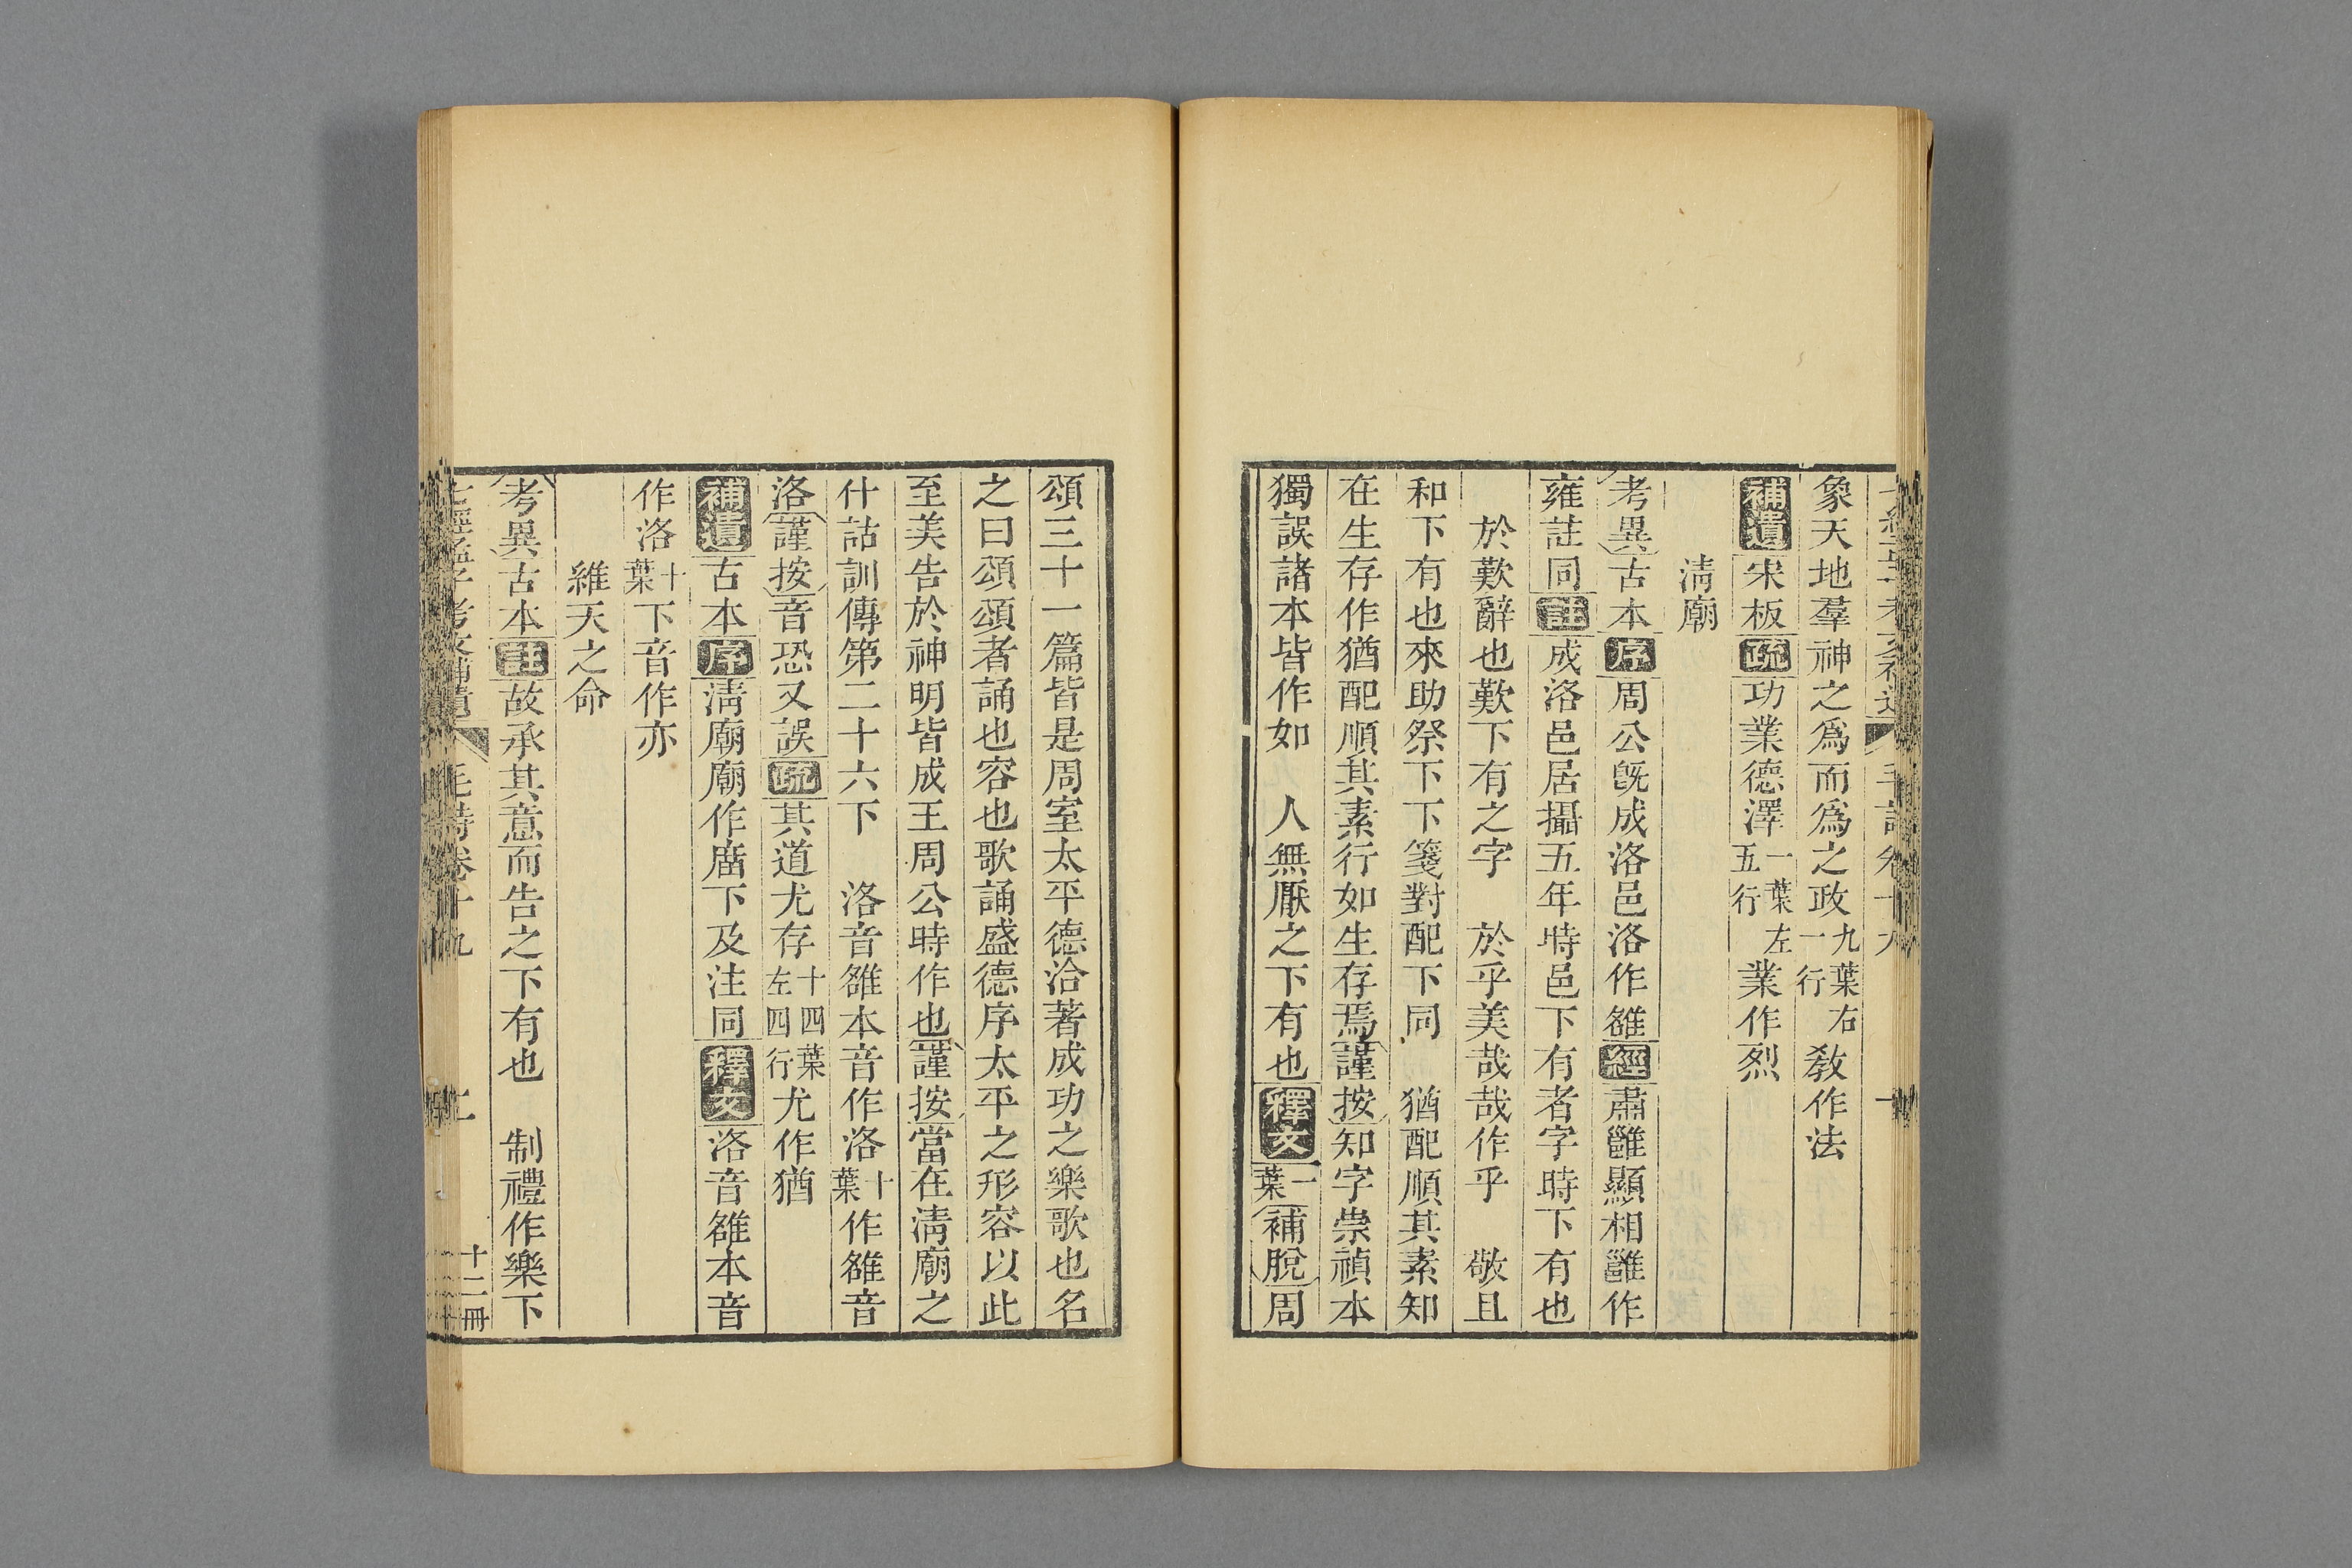 象天地羣神之爲而爲之政九葉右一行教作法
補遺宋板疏功業德澤一葉左五行業作烈
淸廟
考異古本序周公旣成洛邑洛作雒經肅雝顯相雝作
雍註同註成洛邑居攝五年時邑下有者字時下有也
於歎辭也歎下有之字　於乎美哉哉作乎　敬且
和下有也來助祭下下箋對配下同　猶配順其素知
在生存作猶配順其素行如生存焉謹按知字祟禎本
獨誤諸本皆作如　人無厭之下有也釋文一葉補脫周
頌三十一篇皆是周室太平德洽著成功之樂歌也名
之曰頌頌者誦也容也歌誦盛德序太平之形容以此
至美告於神明皆成王周公時作也謹按當在淸廟之
什詁訓傳第二十六下　洛音雒本音作洛十葉作雒音
洛謹按音恐又誤疏其道尤存十四葉左四行尤作猶
補遺古本序淸廟廟作庿下及注同釋文洛音雒本音
作洛十葉下音作亦
維天之命
考異古本註故承其意而告之下有也　制禮作樂下
七經孟子考文補遺　毛詩卷十九　二　十二冊